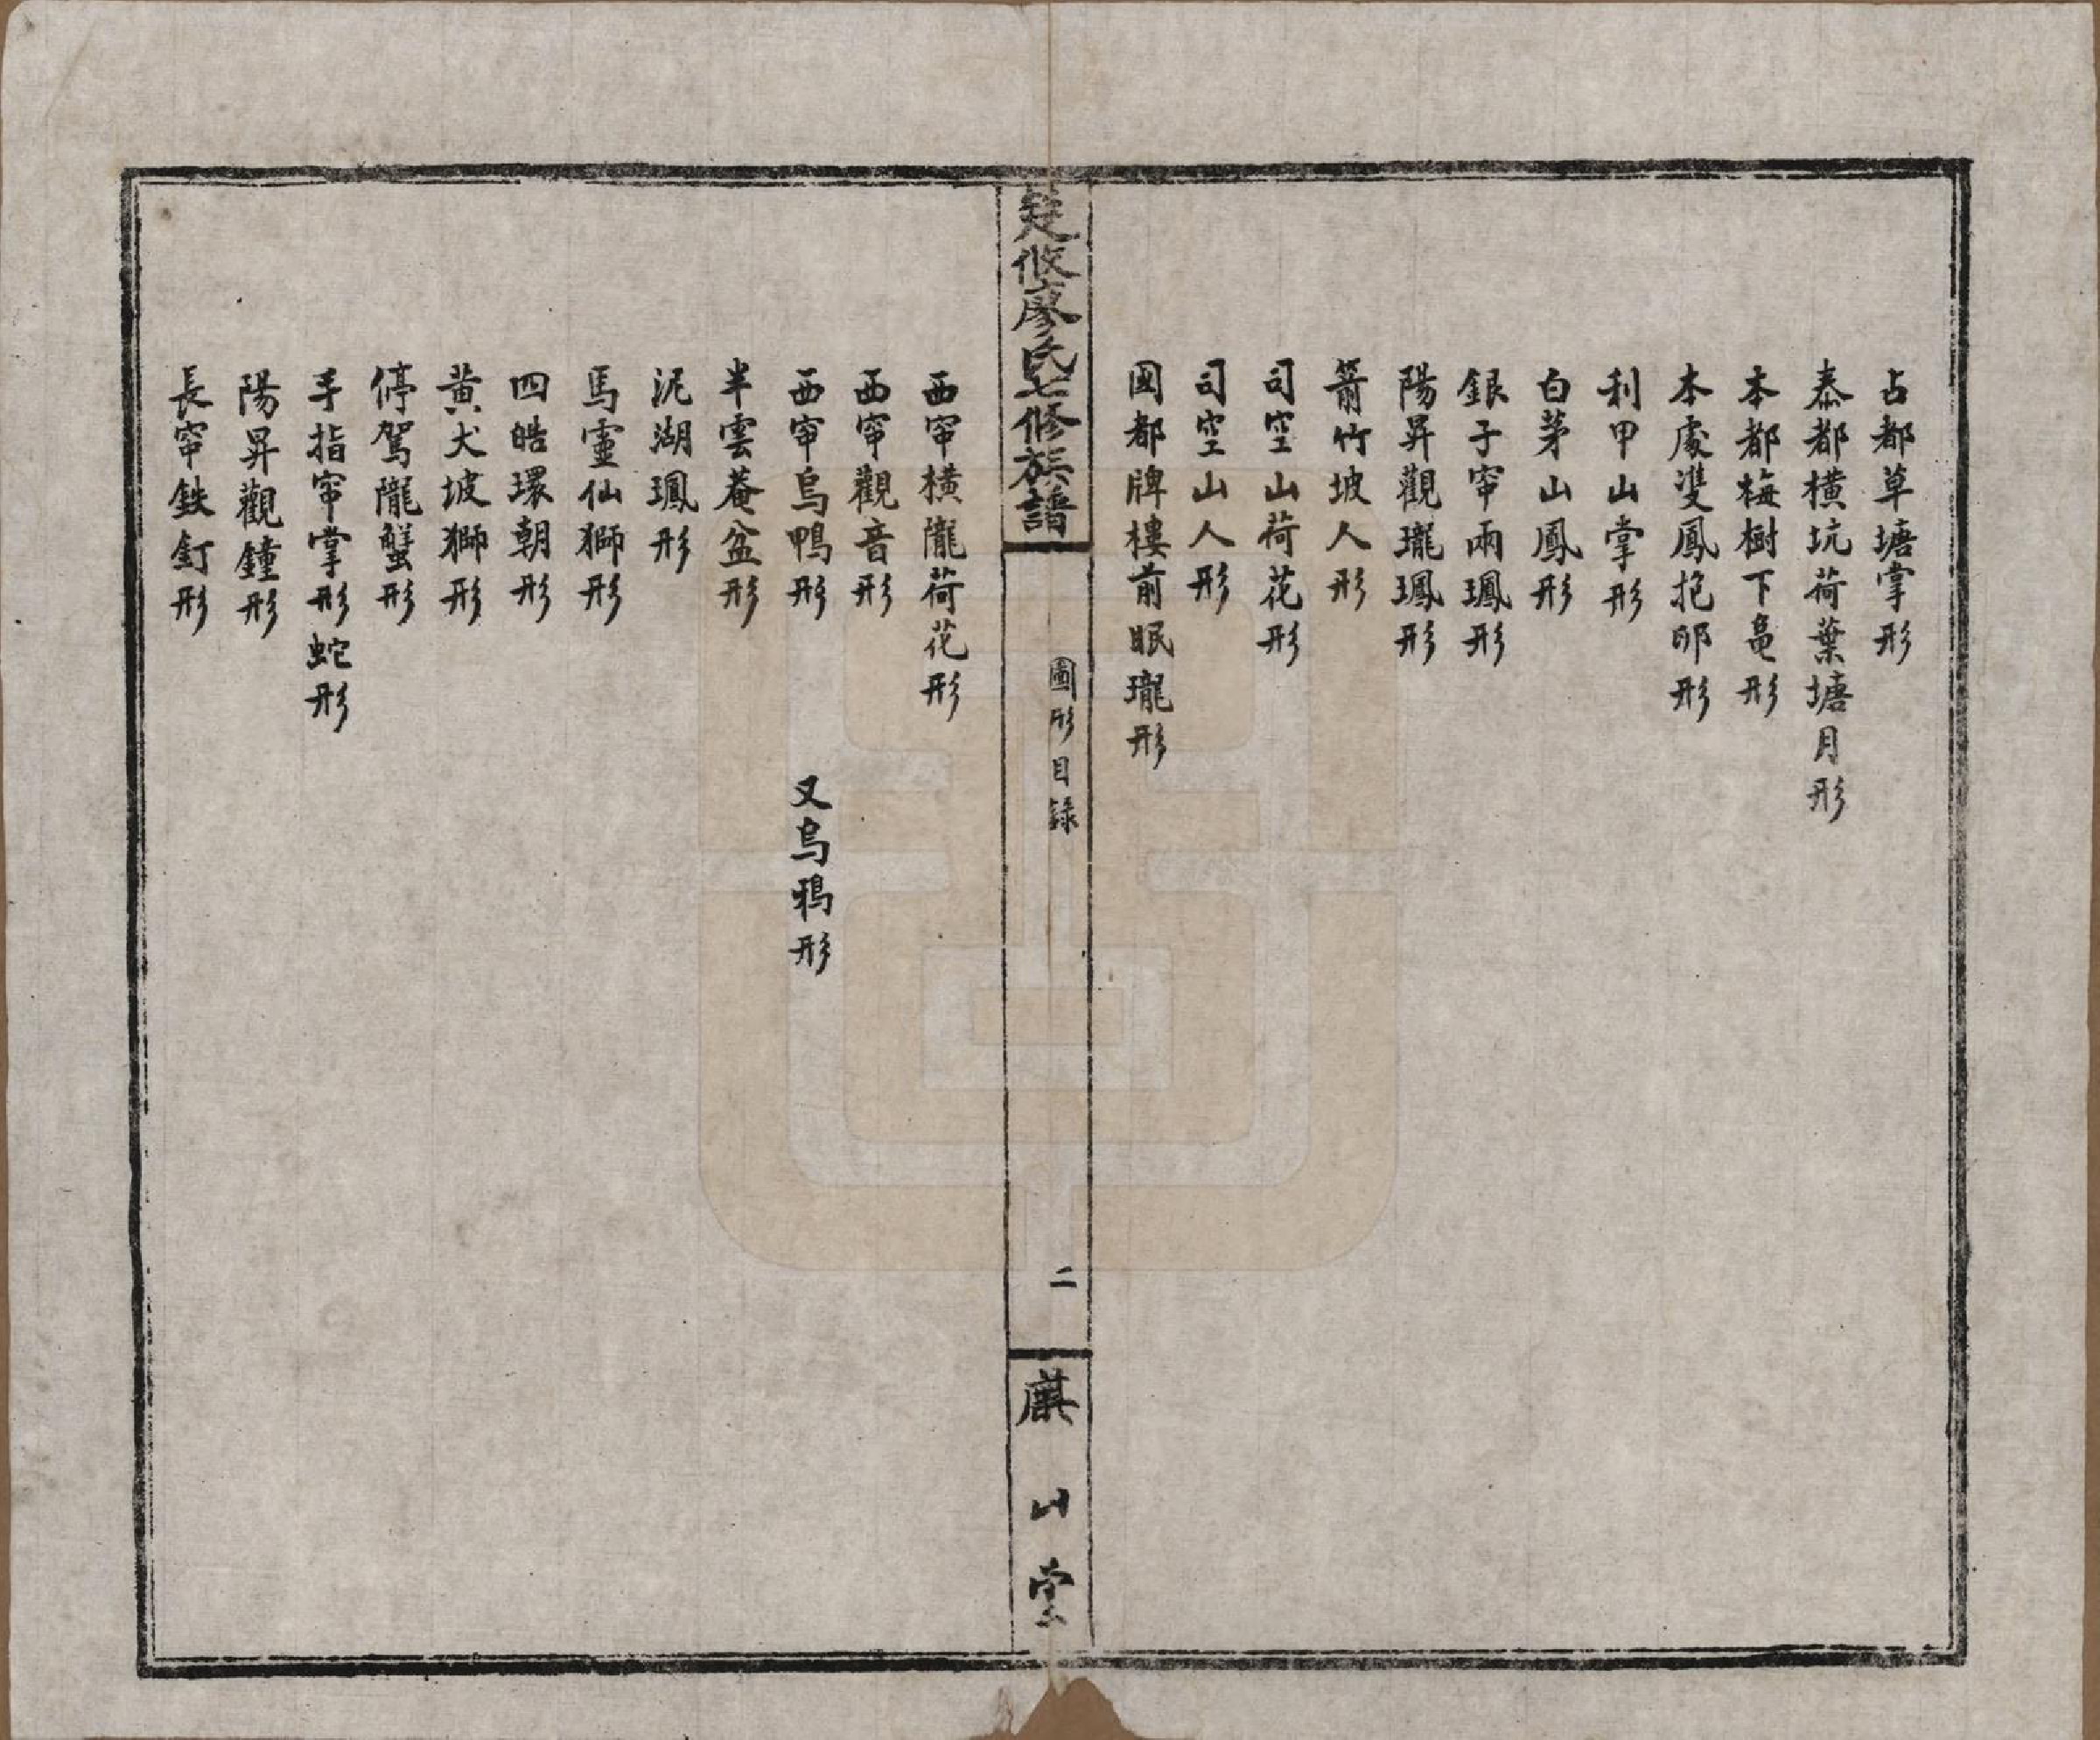 占都草塘掌形
泰都橫坑荷葉塘月形
本都梅樹下黽形
本處雙鳳抱卵形
利甲山掌形
白茅山鳳形
銀子帘兩鳳形
陽昇觀瓏鳳形
箭竹坡人形
司空山荷花形
司空山人形
國都牌樓前眠瓏形
楚攸廖氏七修族譜
圖形目錄
二
麒山堂
西帘橫隴荷花形
西帘觀音形
西帘烏鴨形 又烏鴉形
半雲菴盆形
泥湖鳳形
馬靈仙獅形
四皓環朝形
黄犬坡獅形
停駕隴蟹形
手指帘掌形蛇形
陽昇觀鐘形
長帘鉄釘形